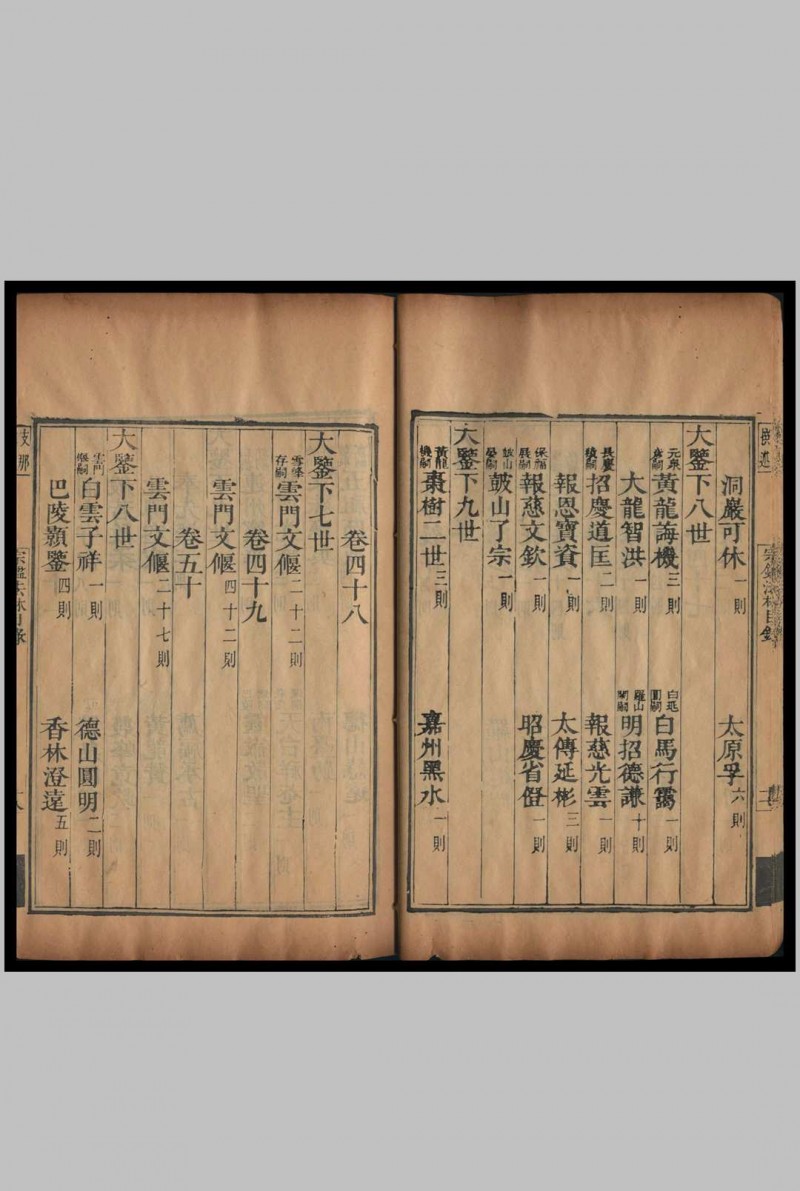 洞巖可休 一則 太原孚 六則
大鑒下八世
黃龍誨機 三則 白馬行靄 一則
大龍智洪 一則 明招德謙 十則
長慶稜嗣 招慶道匡 一則 報慈光雲 一則
報恩寶資 一則 太傳延彬 三則
保福展嗣 報慈文欽 一則 昭慶省僜 一則
鼓山晏嗣 鼓山了宗 一則
大鑒下九世
黃龍機嗣 棗樹二世 三則 嘉州黑水 一則
宗鑑法林目錄
卷四十八
大鑒下七世
雪峰存嗣 雲門文偃 二十二則
卷四十九
雲門文偃 四十二則
卷五十
雲門文偃 二十七則
大鑒下八世
雲門偃嗣 白雲子祥 一則 德山圓明 二則
巴陵顥鑒 四則 香林澄遠 五則
宗鑑法林目錄